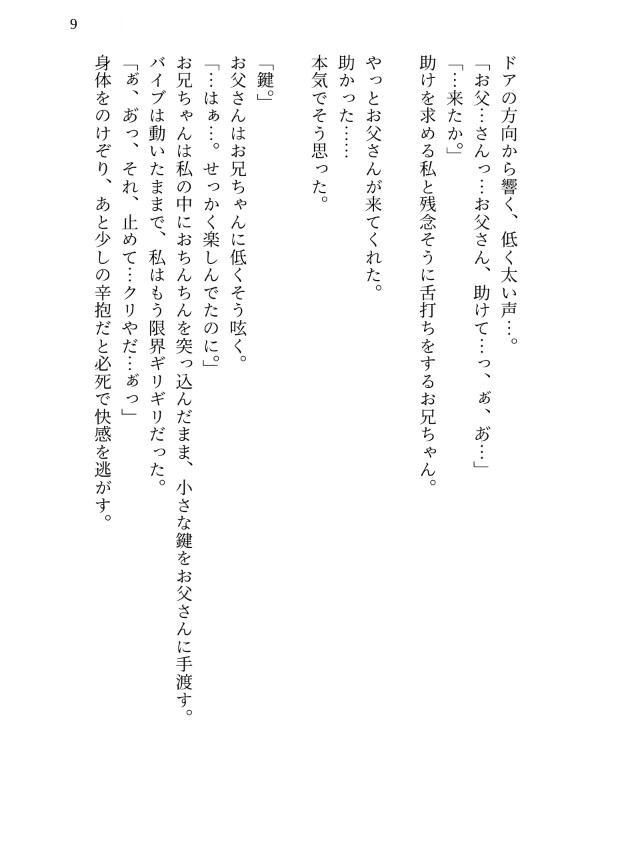 9
ドアの方向から響く、低く太い声…。
「お父…さんっ…お父さん、助けて…っ、ぁ゙、あ゙…」
「…来たか。」
助けを求める私と残念そうに舌打ちをするお兄ちゃん。
やっとお父さんが来てくれた。
助かった……
本気でそう思った。
「鍵。」
お父さんはお兄ちゃんに低くそう呟く。
「…はぁ…。せっかく楽しんでたのに。」
お兄ちゃんは私の中におちんちんを突っ込んだまま、小さな鍵をお父さんに手渡す。
バイブは動いたままで、私はもう限界ギリギリだった。
「ぁ゙、あ゙っ、それ、止めて…クリやだ…ぁ゙っ」
身体をのけぞり、あと少しの辛抱だと必死で快感を逃がす。